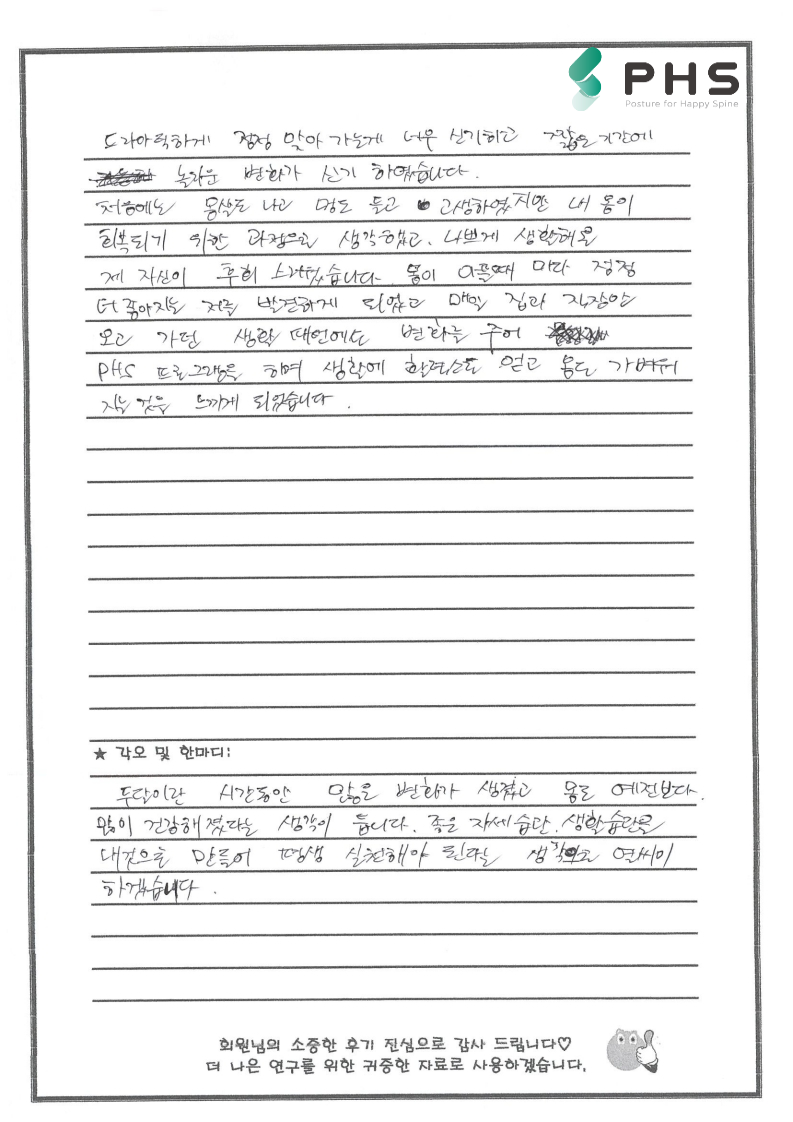 PHS
Posture for Happy Spine
드라마틱하게 점점 맞아 가는게 너무 신기하고 짧은 기간에
놀라운 변화가 신기 하였습니다.
처음에는 몸살도 나고 멍도 들고 고생하였지만 내 몸이
회복되기 위한 과정으로 생각했고, 나쁘게 생활해온
제 자신이 후회 스러웠습니다 몸이 아플때 마다 점점
더 좋아지는 저를 발견하게 되었고 매일 집과 직장만
오고 가던 생활 패턴에도 변화를 주어
PHS 프로그램을 하며 생활에 활력소도 얻고 몸도 가벼워
지는 것을 느끼게 되었습니다.
★ 각오 및 한마디:
두달이란 시간동안 많은 변화가 생겼고 몸도 예전보다.
많이 건강해졌다는 생각이 듭니다. 좋은 자세습관, 생활습관을
내것으로 만들어 평생 실천해야 된다는 열씨이
하겠습니다.
회원님의 소중한 후기 진심으로 감사 드립니다♡
더 나은 연구를 위한 귀중한 자료로 사용하겠습니다.